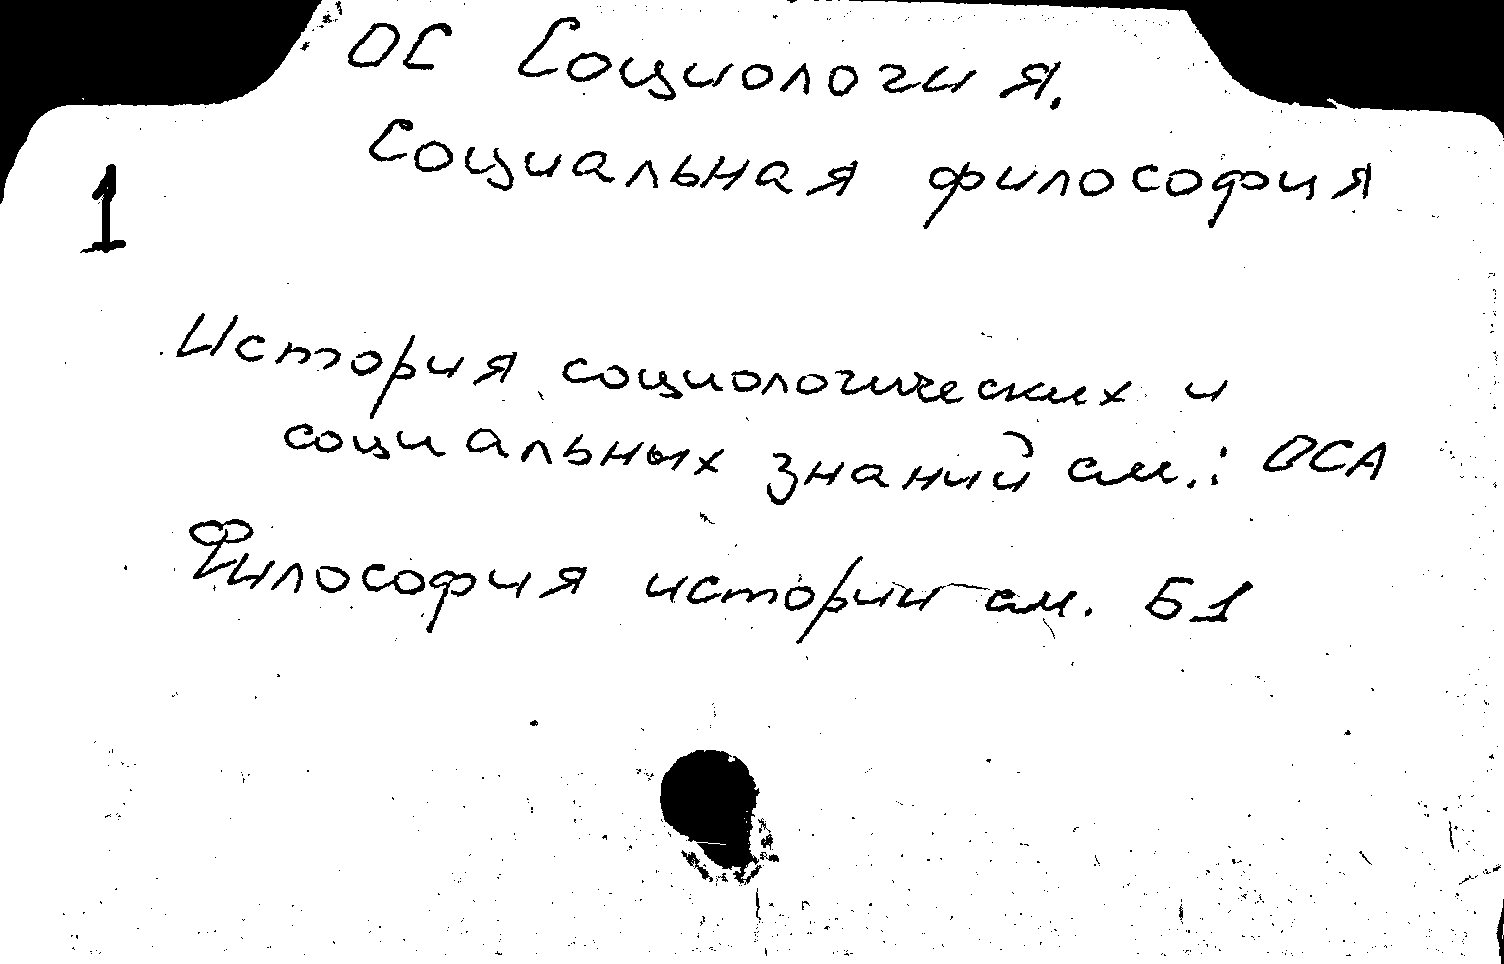 ОС Социология.
Социальная философия
1
История социологических и
социальных знаний см.: ОСА
Философия истории см. Б1